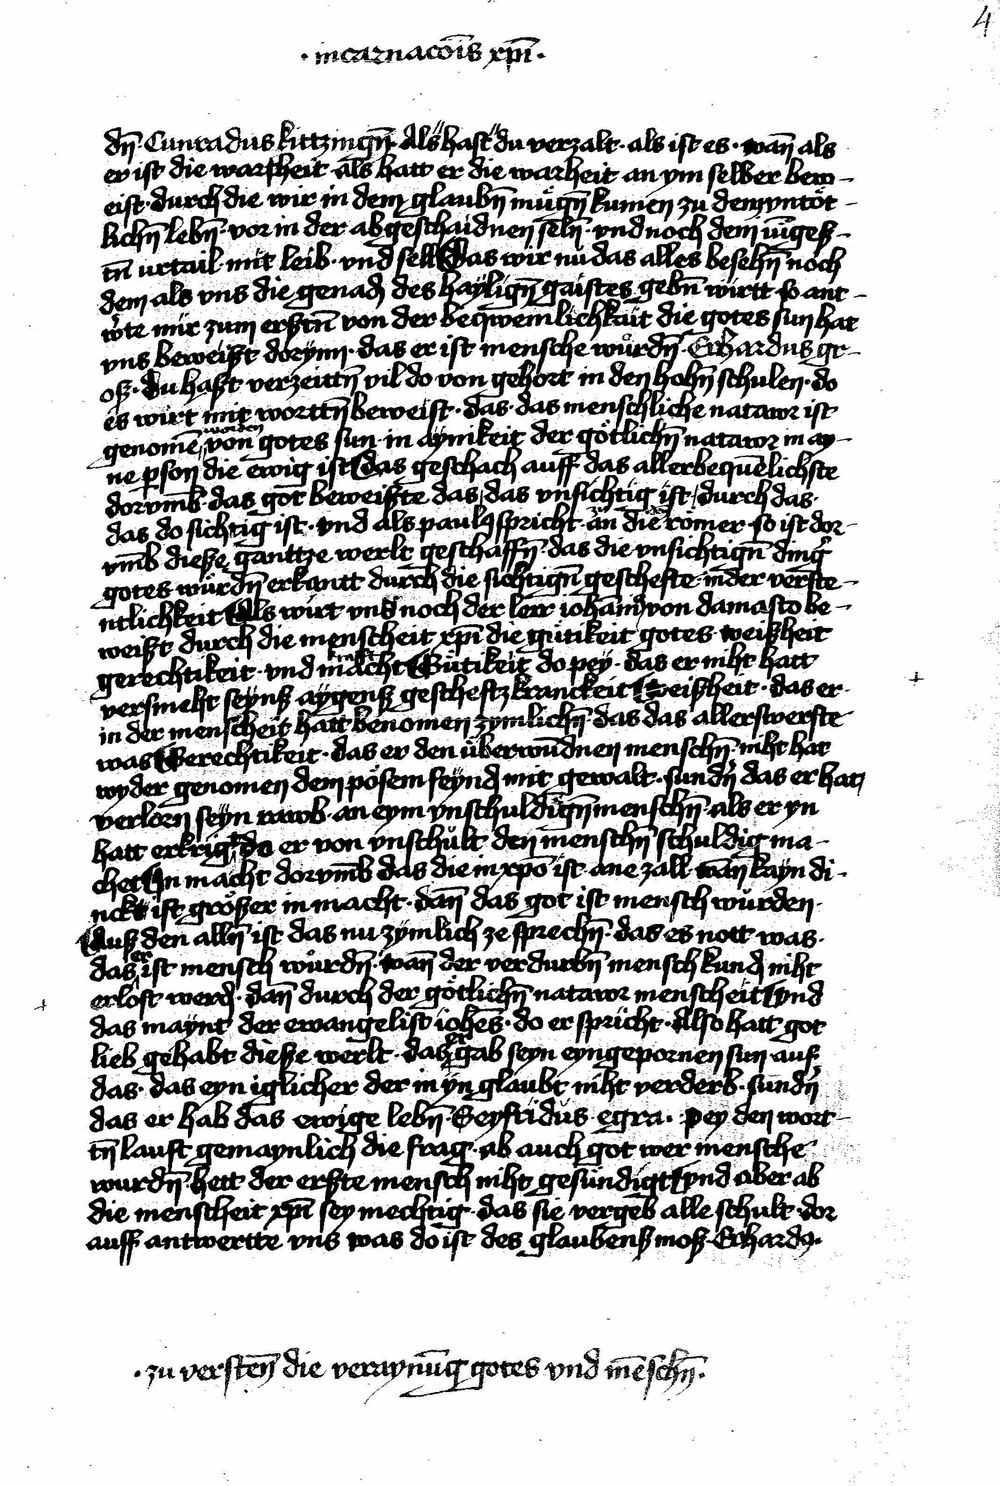 4
· incarnacōis xpī ·
dn̄ · Cunradus kittzingn̄ · Als hast du verzalt · als ist es · wan̄ als
er ist die warheit als hatt er die warheit an ym selber bew-
eist · durch die wir in dem glaubn̄ mügn̄ kumen zu dem vntöt-
lichn̄ lebn̄ · vor in der abgeschaidnen seln̄ · vnd noch dem iūgesz-
tn̄ vrtail · mit leib · vnd sell Das wir nu das alles besehn̄ noch
dem als vns die genad des haylign̄ gaistes gebn̄ wirtt · so ant-
w̓te mir zum ersztn̄ von der beqwemlichkait die gotes sun hat
vns beweiszt dorynn · das er ist mensche würdn̄ · Erhardus gr-
osz · Du haszt verzeittn̄ vil do von gehort in den hohn̄ schulen · do
es wirt mit worttn̄ beweist · das · das menschliche natawr ist
genomē worden von gotes sun · in aynikeit der götlichn̄ natawr in ay-
ne pson die ewig ist Das geschach auff das allerbequēlichste
dorvmb · das got beweiszte das das vnsichtig ist durch das ·
das do sichtig ist · vnd als paulꝯ spricht · an die römer · so ist dor-
vmb diesze ganttze werlt geschaffn̄ · das die vnsichtign̄ ding̓
gotes würdn̄ erkantt durch die sichtign̄ geschefte · in der verste-
ntlichkeit Als wirt vns noch der lerr iohan̄ von damasco be-
weiszt durch die menscheit xpī die gütikeit gotes · weiszheit
gerechtikeit · vnd macht krafft Gütikeit do pey · das er niht hatt
versmeht seynsz aygensz gescheftz kranckeit Weiszheit · das er ·
in der menscheit hatt benomen zymlichn̄ das das allerswerste
was Gerechtikeit · das er den überwūdnen menschn̄ · niht hat
wyder genomen dem pösem feynd mit gewalt · sundn̄ das er hatt
verlorn seyn rawb · an eym vnschuldign̄ menschn̄ · als er yn
hatt erkrigt do er von vnschult den menschn̄ schuldig ma-
chet In macht dorvmb das die in xpō ist · ane zall · wan̄ kayn di-
nckt ist gröszer in macht · dan̄ das got ist mensch würden ·
Ausz den alln̄ ist das nu zymlich ze sprechn̄ · das es nott was ·
das er ist mensch würdn̄ · wan̄ der verdurbn̄ mensch kund niht
erlöst werd · dan̄ durch der götlichn̄ natawr menscheit Vnd
das maynt der ewangelist iohēs · do er spricht · Also hatt got
lieb gehabt diesze werlt · das er gab seyn eyngepornen sun auf
das · das eyn iglicher der in yn glaubt niht verderb · sundn̄
das er hab das ewige lebn̄ · Seyfridus · egra · pey den wort-
tn̄ lauft gemaynlich die frag · ab auch got wer mensche
wurdn̄ · hett der erszte mensch niht gesündigt Vnd aber ab
die menscheit xpī sey mechtig · das sie vergeb alle schult · dor
auff antwertte vns was do ist des glaubensz mosz · Erhardꝯ ·
· zu versten̄ die veraynūg gotes vnd mēschn̄ ·